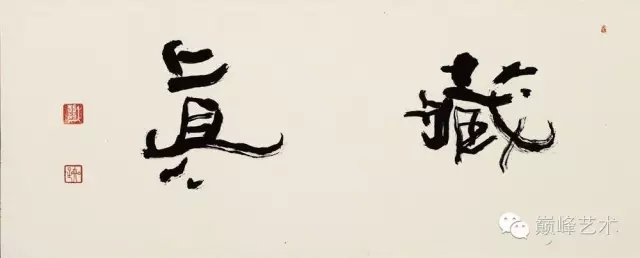 藏真
巅峰艺术